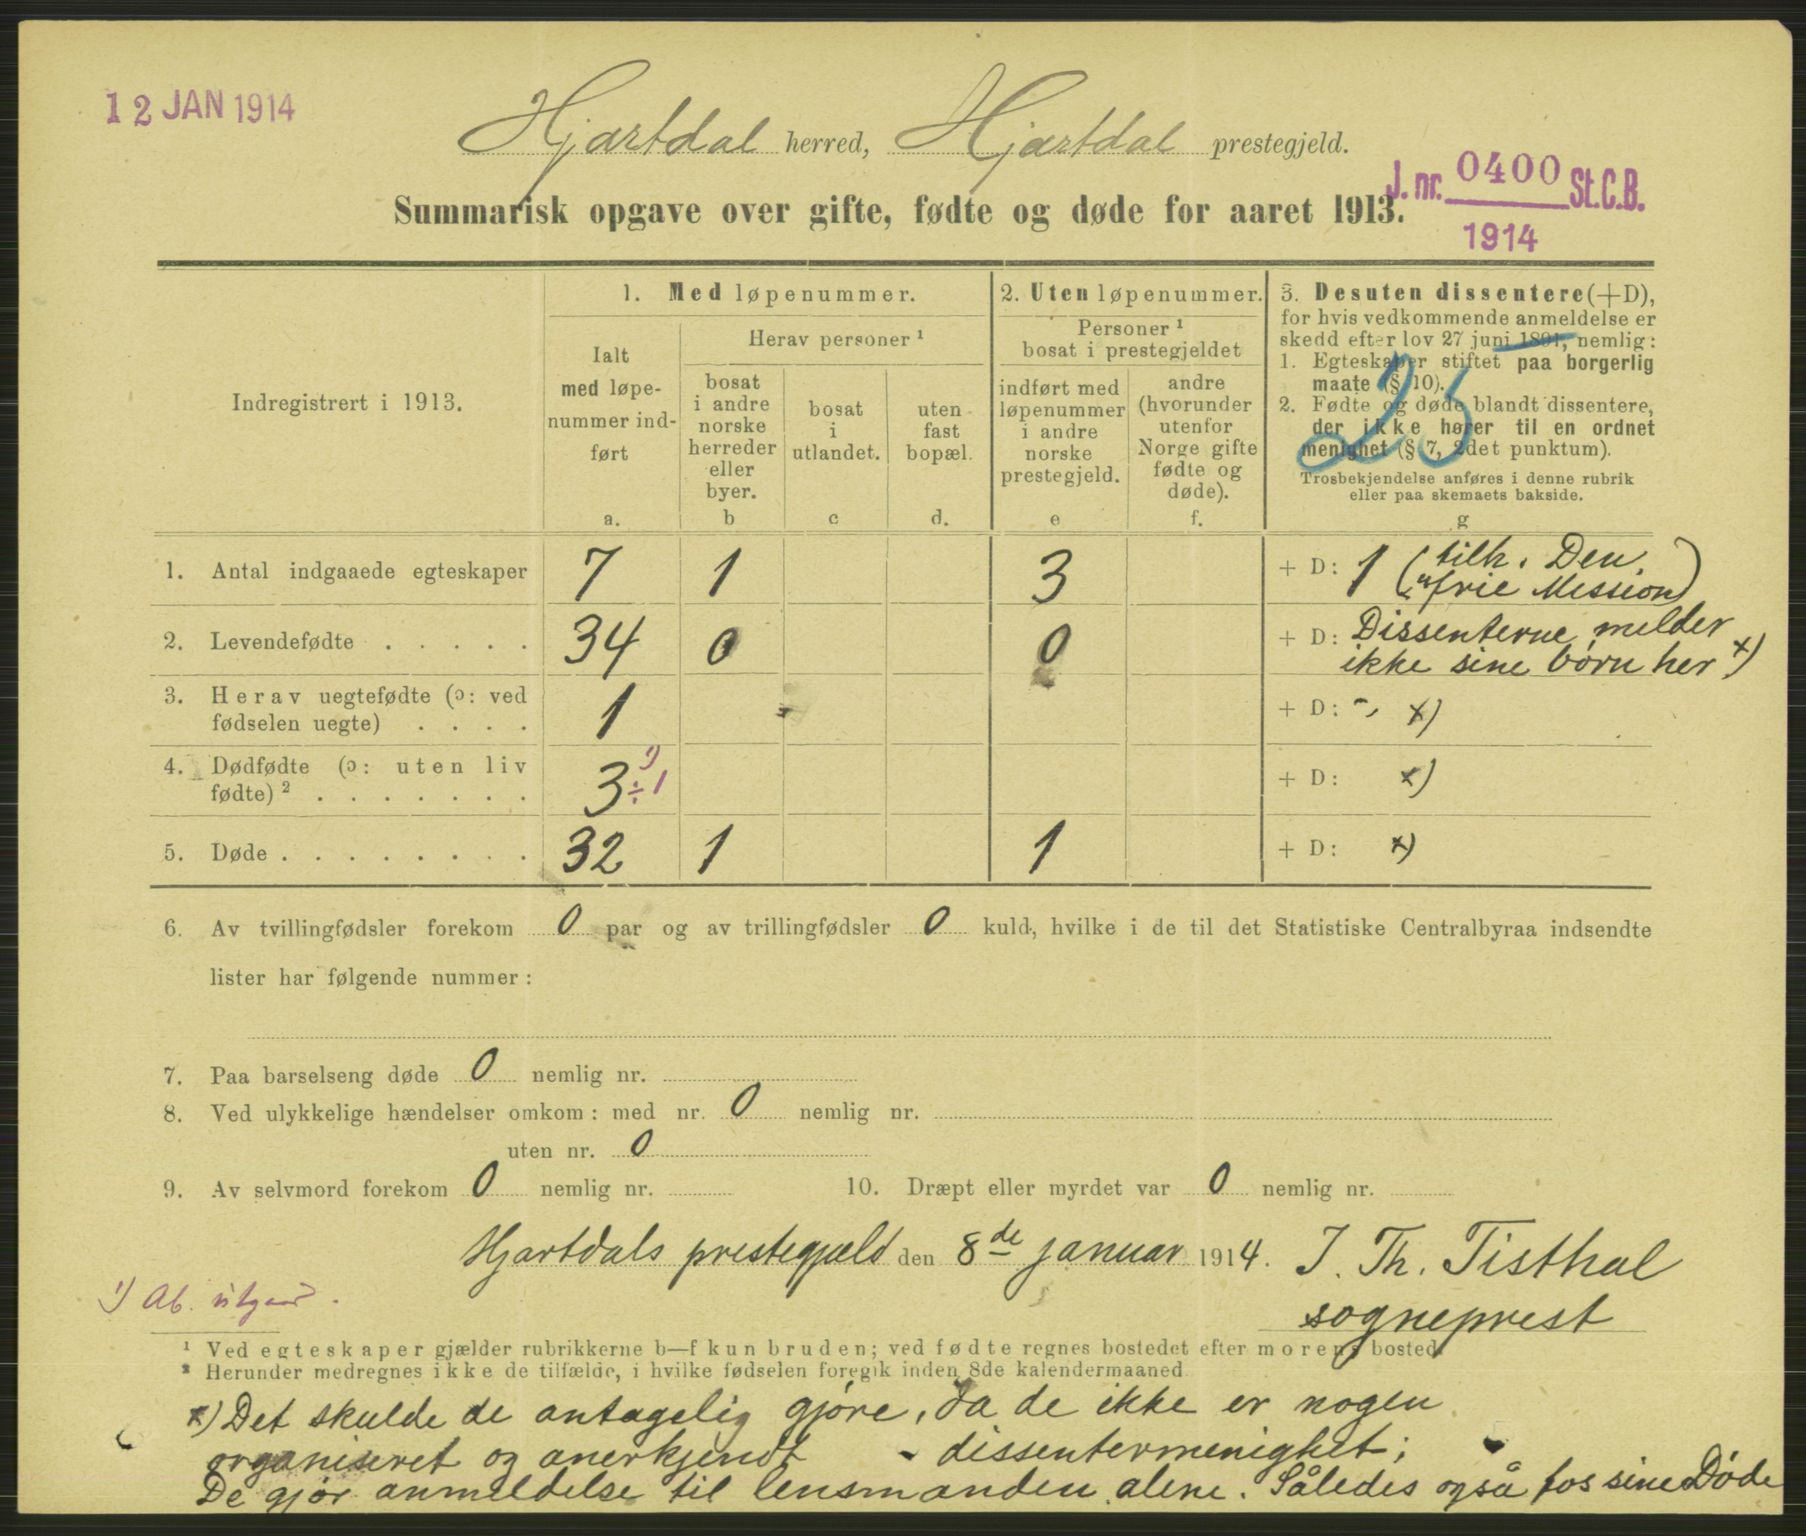 12 JAN 1914
Hjartdal herred, Hjartdal prestegjeld.
J. nr. 0400 St.C.B.
1914
Summarisk opgave over gifte, fødte og døde for aaret 1913.
Indregistrert i 1913.
1. Med løpenummer.
Ialt
med løpe-
nummer ind-
ført
a.
Herav personer ¹
bosat
i andre
norske
herreder
eller
byer.
b
bosat
i
utlandet.
c
uten
fast
bopæl.
d.
2. Uten løpenummer.
Personer ¹
bosat i prestegjeldet
indført med
løpenummer
i andre
norske
prestegjeld.
e
andre
(hvorunder
utenfor
Norge gifte
fødte og
døde).
f.
3. Desuten dissentere (+D),
for hvis vedkommende anmeldelse er
skedd efter lov 27 juni 1891, nemlig:
1. Egteskaper stiftet paa borgerlig
maate (§ 10).
2. Fødte og døde blandt dissentere,
der ikke hører til en ordnet
menighet (§ 7, 2det punktum).
Trosbekjendelse anføres i denne rubrik
eller paa skemaets bakside.
g
25
1. Antal indgaaede egteskaper 7 1 3 + D: 1 (tilh. Den
"frie Mission)
2. Levendefødte . . . . . 34 0 0 + D: Dissenterne melder
ikke sine børn her x)
3. Herav uegtefødte (ɔ: ved
fødselen uegte) . . . . 1 + D: -, x)
4. Dødfødte (ɔ: uten liv
fødte) ² . . . . . . . 3 ¹) ÷1 + D: x)
5. Døde . . . . . . . . . 32 1 1 + D: x)
6. Av tvillingfødsler forekom 0 par og av trillingfødsler 0 kuld, hvilke i de til det Statistiske Centralbyraa indsendte
lister har følgende nummer:
7. Paa barselseng døde 0 nemlig nr.
8. Ved ulykkelige hændelser omkom: med nr. 0 nemlig nr.
uten nr. 0
9. Av selvmord forekom 0 nemlig nr. 10. Dræpt eller myrdet var 0 nemlig nr.
Hjartdals prestegjæld den 8de januar 1914. J. Th. Tisthal
sogneprest
¹) Ab. utgaar.
¹ Ved egteskaper gjælder rubrikkerne b—f kun bruden; ved fødte regnes bostedet efter morens bosted.
² Herunder medregnes ikke de tilfælde, i hvilke fødselen foregik inden 8de kalendermaaned.
x) Det skulde de antagelig gjøre, da de ikke er nogen
organiseret og anerkjendt - dissentermenighet;
De gjør anmeldelse til lensmanden alene. Således også for sine Døde